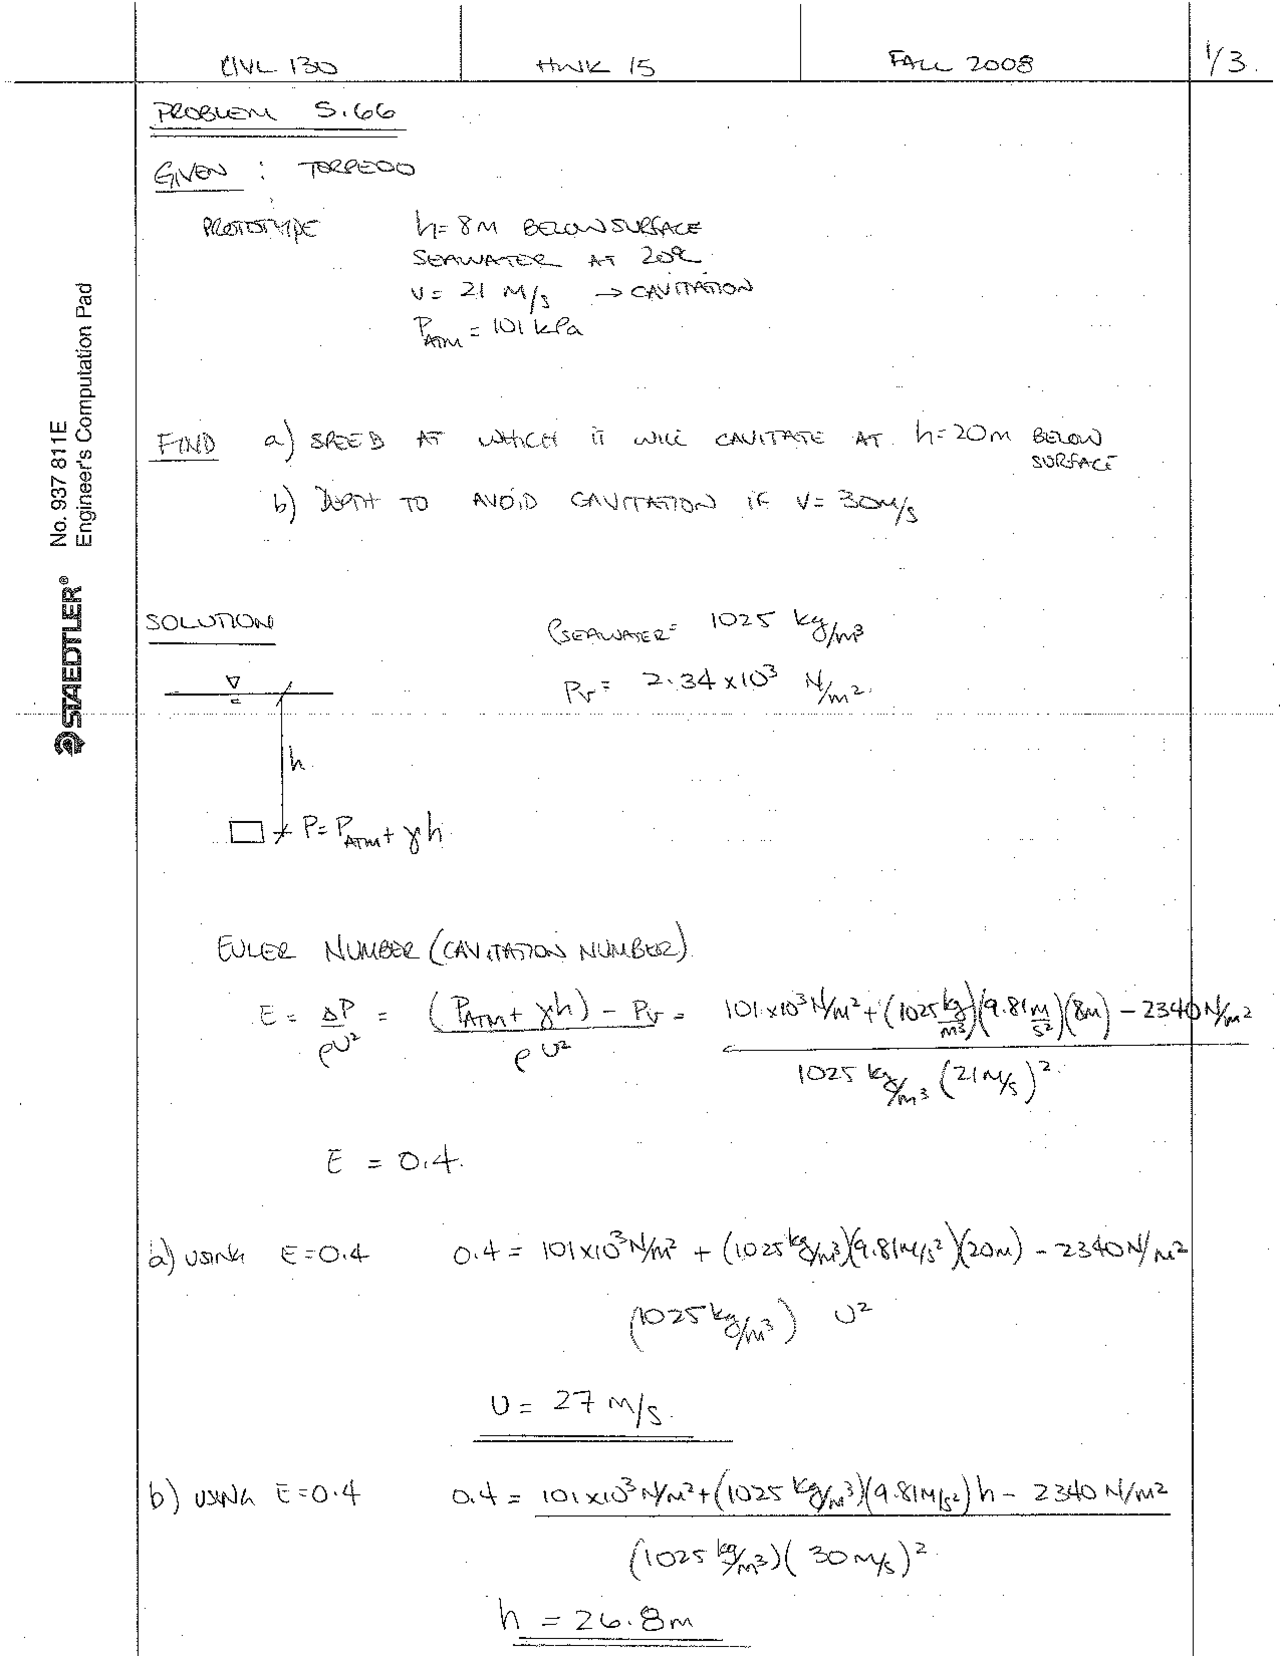 CIVL 130 HWK 15 FALL 2008 1/3.
PROBLEM 5.66
GIVEN : TORPEDO
PROTOTYPE h = 8M BELOW SURFACE
SEAWATER AT 20°C
V = 21 M/S → CAVITATION
P_ATM = 101 kPa
FIND a) SPEED AT WHICH IT WILL CAVITATE AT h=20m BELOW SURFACE
b) DEPTH TO AVOID CAVITATION IF V= 30M/S
No. 937 811E
Engineer's Computation Pad
STAEDTLER®
SOLUTION ρ_SEAWATER = 1025 kg/m³
P_v = 2.34 x10³ N/m².
h
P= P_ATM + γh
EULER NUMBER (CAVITATION NUMBER)
E = ΔP/ρU² = ((P_ATM + γh) - P_v)/ρU² = (101x10³ N/m² + (1025 kg/m³)(9.81 m/s²)(8m) - 2340 N/m²)/(1025 kg/m³ (21 M/S)²)
E = 0.4.
a) USING E=0.4 0.4 = 101x10³ N/m² + (1025 kg/m³)(9.81 M/s²)(20m) - 2340 N/m²
(1025 kg/m³) U²
U = 27 M/S.
b) USING E=0.4 0.4 = 101x10³ N/M² + (1025 kg/m³)(9.81 M/s²) h - 2340 N/m²
(1025 kg/m³)( 30 M/S)²
h = 26.8m